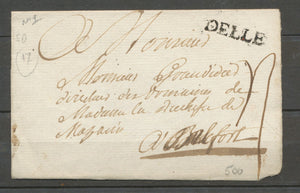 N° 1
17
DELLE
Monsieur
Monsieur
directeur des Domaines de
Madame la Duchesse de
Mazarin
A Belfort
500